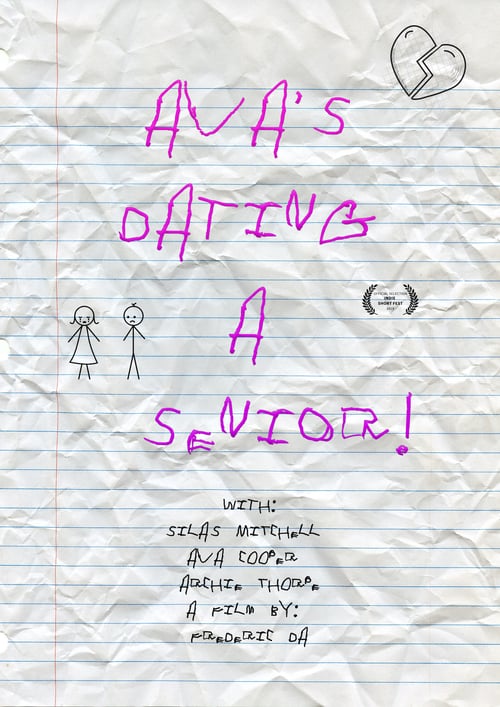 AVA'S
DATING
A
OFFICIAL SELECTION
INDIE
SHORT FEST
SENIOR!
WITH:
SILAS MITCHELL
AVA COOPER
ARCHIE THORPE
A FILM BY:
FREDERIC DA